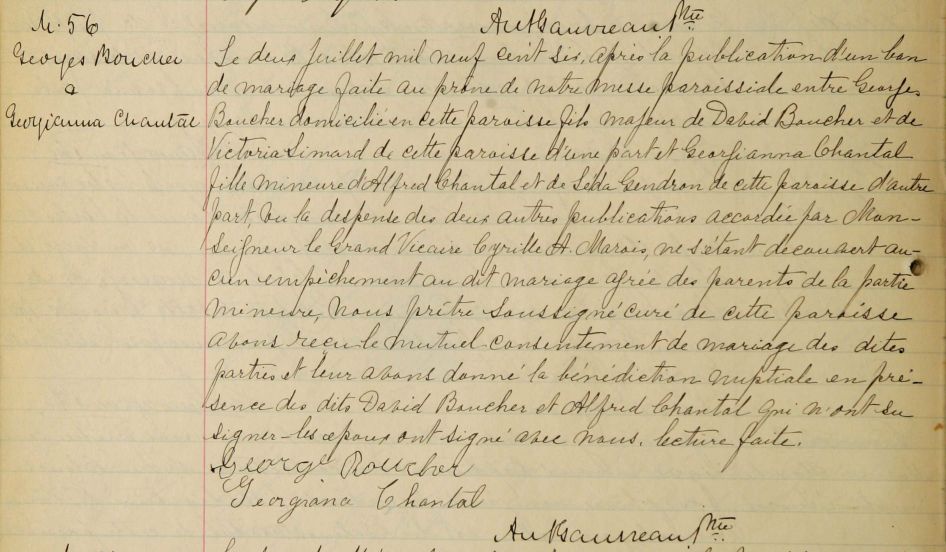 Ant Gauvreau Ptre
M. 56
Georges Boucher
&
Georgianna Chantal
Le deux Juillet mil neuf cent six, après la publication d'un ban
de mariage faite au prône de notre messe paroissiale entre Georges
Boucher domicilié en cette paroisse fils majeur de David Boucher et de
Victoria Simard de cette paroisse d'une part et Georgianna Chantal
fille mineure d'Alfred Chantal et de Léda Gendron de cette paroisse d'autre
part, vu la despense des deux autres publications accordée par Mon-
seigneur le Grand Vicaire Cyrille A. Marois, ne s'étant découvert au-
cun empêchement au dit mariage agrée des parents de la partie
mineure, Nous prêtre soussigné curé de cette paroisse
avons reçu le mutuel consentement de mariage des dites
parties et leur avons donné la bénédiction nuptiale en pré-
sence des dits David Boucher et Alfred Chantal qui n'ont su
signer - les epoux ont signé avec nous. lecture faite.
George Boucher
Georgiana Chantal
Ant Gauvreau Ptre